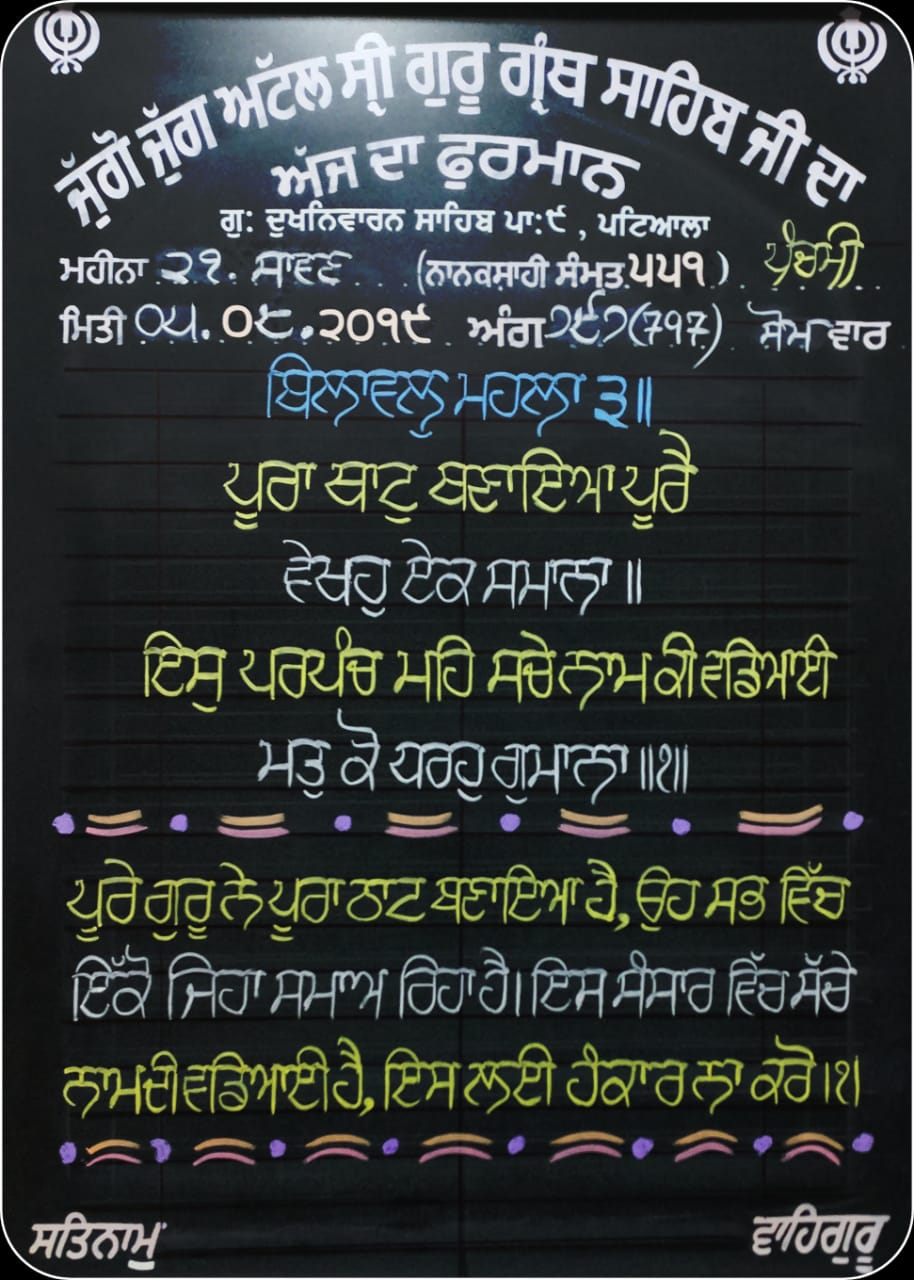 ਜੁੱਗੋ ਜੁੱਗ ਅੱਟਲ ਸ੍ਰੀ ਗੁਰੂ ਗ੍ਰੰਥ ਸਾਹਿਬ ਜੀ ਦਾ
ਅੱਜ ਦਾ ਫੁਰਮਾਨ
ਗੁ: ਦੁਖਨਿਵਾਰਨ ਸਾਹਿਬ ਪਾ:੯, ਪਟਿਆਲਾ
ਮਹੀਨਾ ੨੧. ਸਾਵਣ (ਨਾਨਕਸ਼ਾਹੀ ਸੰਮਤ ੫੫੧) ਪੰਚਮੀ
ਮਿਤੀ ੦੫.੦੮.੨੦੧੯ ਅੰਗ ੭੯੭(797) ਸੋਮਵਾਰ
ਬਿਲਾਵਲੁ ਮਹਲਾ ੩॥
ਪੂਰਾ ਥਾਟੁ ਬਣਾਇਆ ਪੂਰੈ
ਵੇਖਹੁ ਏਕ ਸਮਾਨਾ ॥
ਇਸੁ ਪਰਪੰਚ ਮਹਿ ਸਚੇ ਨਾਮ ਕੀ ਵਡਿਆਈ
ਮਤੁ ਕੋ ਧਰਹੁ ਗੁਮਾਨਾ ॥੧॥
ਪੂਰੇ ਗੁਰੂ ਨੇ ਪੂਰਾ ਠਾਟ ਬਣਾਇਆ ਹੈ, ਉਹ ਸਭ ਵਿੱਚ
ਇੱਕੋ ਜਿਹਾ ਸਮਾਅ ਰਿਹਾ ਹੈ। ਇਸ ਸੰਸਾਰ ਵਿੱਚ ਸੱਚੇ
ਨਾਮ ਦੀ ਵਡਿਆਈ ਹੈ, ਇਸ ਲਈ ਹੰਕਾਰ ਨਾ ਕਰੋ।੧।
ਸਤਿਨਾਮੁ ਵਾਹਿਗੁਰੂ